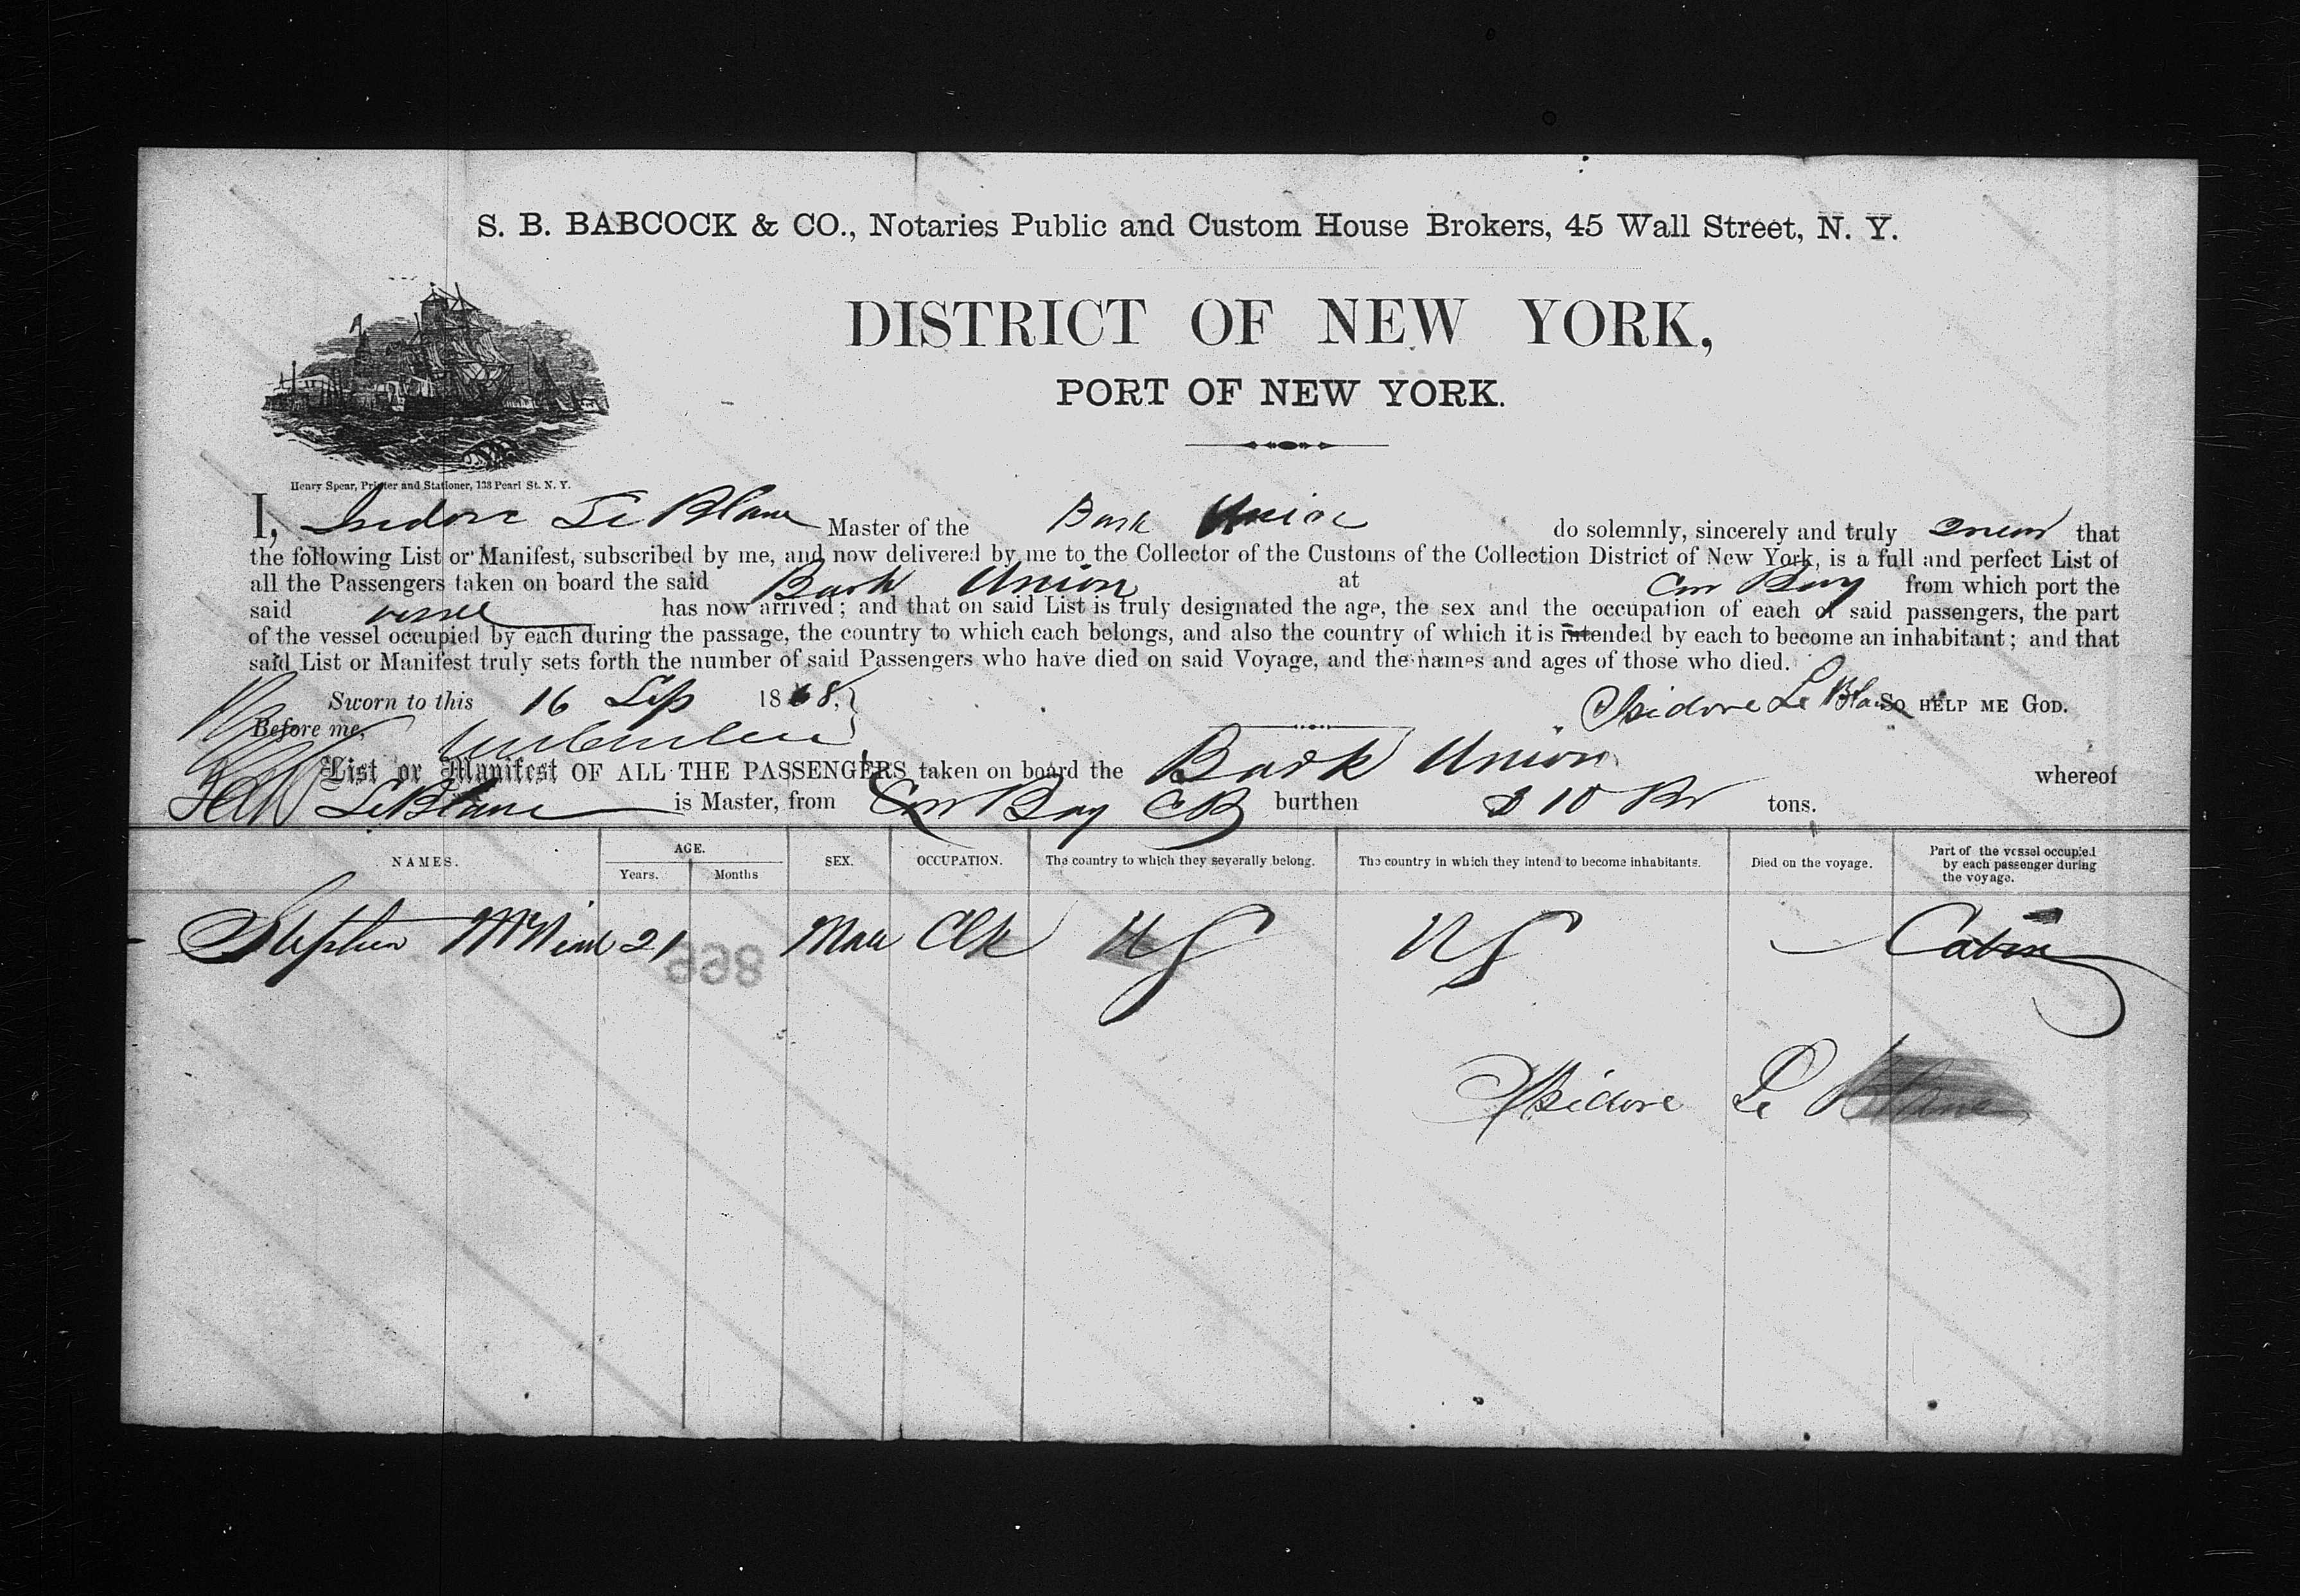 S. B. BABCOCK & CO., Notaries Public and Custom House Brokers, 45 Wall Street, N. Y.
DISTRICT OF NEW YORK,
PORT OF NEW YORK.
Henry Spear, Printer and Stationer, 133 Pearl St. N. Y.
I, Isidore Le Blanc Master of the Bark Union do solemnly, sincerely and truly swear that
the following List or Manifest, subscribed by me, and now delivered by me to the Collector of the Customs of the Collection District of New York, is a full and perfect List of
all the Passengers taken on board the said Bark Union at Cow Bay from which port the
said vessel has now arrived; and that on said List is truly designated the age, the sex and the occupation of each of said passengers, the part
of the vessel occupied by each during the passage, the country to which each belongs, and also the country of which it is intended by each to become an inhabitant; and that
said List or Manifest truly sets forth the number of said Passengers who have died on said Voyage, and the names and ages of those who died.
Sworn to this 16 Sep 1868, Isidore Le Blanc SO HELP ME GOD.
Before me,
List or Manifest OF ALL THE PASSENGERS taken on board the Bark Union whereof
Le Blanc is Master, from Cow Bay CB burthen 310 Br tons.
NAMES. AGE. Years. Months SEX. OCCUPATION. The country to which they severally belong. The country in which they intend to become inhabitants. Died on the voyage. Part of the vessel occupied by each passenger during the voyage.
Stephen 21 Male Clk US US Cabin
899
Isidore Le Blanc